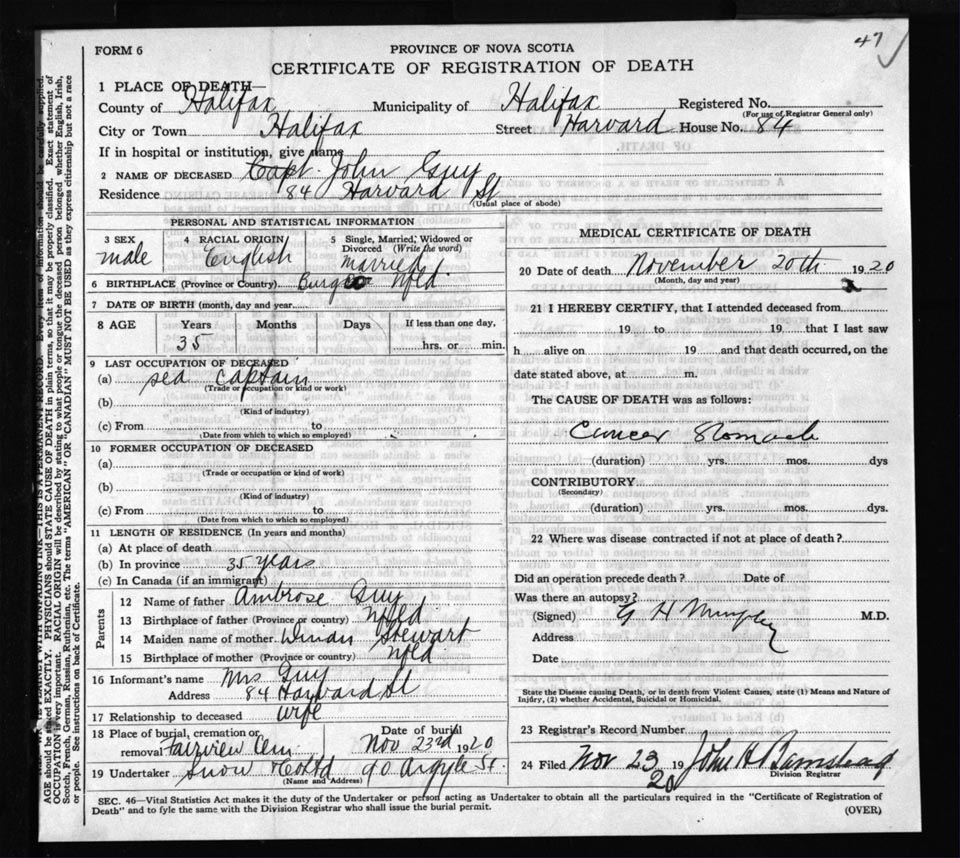 47
FORM 6
PROVINCE OF NOVA SCOTIA
CERTIFICATE OF REGISTRATION OF DEATH
1 PLACE OF DEATH—
County of Halifax Municipality of Halifax Registered No.
(For use of Registrar General only)
City or Town Halifax Street Harvard House No. 84
If in hospital or institution, give name
2 NAME OF DECEASED Capt. John Guy
Residence 84 Harvard St
(Usual place of abode)
PERSONAL AND STATISTICAL INFORMATION
3 SEX male
4 RACIAL ORIGIN English
5 Single, Married, Widowed or Divorced (Write the word) married
6 BIRTHPLACE (Province or Country) Burgeo Nfld
7 DATE OF BIRTH (month, day and year)
8 AGE Years Months Days If less than one day,
35 hrs. or min.
9 LAST OCCUPATION OF DECEASED
(a) sea captain
(Trade or occupation or kind or work)
(b)
(Kind of industry)
(c) From to
(Date from which to which so employed)
10 FORMER OCCUPATION OF DECEASED
(a)
(Trade or occupation or kind of work)
(b)
(Kind of industry)
(c) From to
(Date from which to which so employed)
11 LENGTH OF RESIDENCE (In years and months)
(a) At place of death
(b) In province 35 years
(c) In Canada (if an immigrant)
Parents
12 Name of father Ambrose Guy
13 Birthplace of father (Province or country) Nfld
14 Maiden name of mother Stewart
15 Birthplace of mother (Province or country) Nfld
16 Informant's name Mrs Guy
Address 84 Harvard St
17 Relationship to deceased wife
18 Place of burial, cremation or removal Fairview Cem
Date of burial Nov 23rd 1920
19 Undertaker Snow & Co Ltd 90 Argyle St.
(Name and Address)
MEDICAL CERTIFICATE OF DEATH
20 Date of death November 20th 1920
(Month, day and year)
21 I HEREBY CERTIFY, that I attended deceased from
19 to 19 that I last saw
h alive on 19 and that death occurred, on the
date stated above, at m.
The CAUSE OF DEATH was as follows:
Cancer Stomach
(duration) yrs. mos. dys
CONTRIBUTORY
(Secondary)
(duration) yrs. mos. dys.
22 Where was disease contracted if not at place of death?
Did an operation precede death? Date of
Was there an autopsy?
(Signed) G H Murphy M.D.
Address
Date
State the Disease causing Death, or in death from Violent Causes, state (1) Means and Nature of
Injury, (2) whether Accidental, Suicidal or Homicidal.
23 Registrar's Record Number
24 Filed Nov 23 19 20 John H Barnstead
Division Registrar
SEC. 46—Vital Statistics Act makes it the duty of the Undertaker or person acting as Undertaker to obtain all the particulars required in the "Certificate of Registration of
Death" and to fyle the same with the Division Registrar who shall issue the burial permit.
(OVER)
PLAINLY WITH UNFADING INK—THIS IS A PERMANENT RECORD. Every item of information should be carefully supplied.
AGE should be stated EXACTLY. PHYSICIANS should STATE CAUSE OF DEATH in plain terms, so that it may be properly classified. Exact statement of
OCCUPATION is very important. RACIAL ORIGIN will be described by stating to what people or tongue the deceased person belonged, whether English, Irish,
Scotch, French, German, Russian, Ruthenian, etc. The terms "AMERICAN" OR "CANADIAN" MUST NOT BE USED as they express citizenship but not a race
or people. See instructions on back of Certificate.